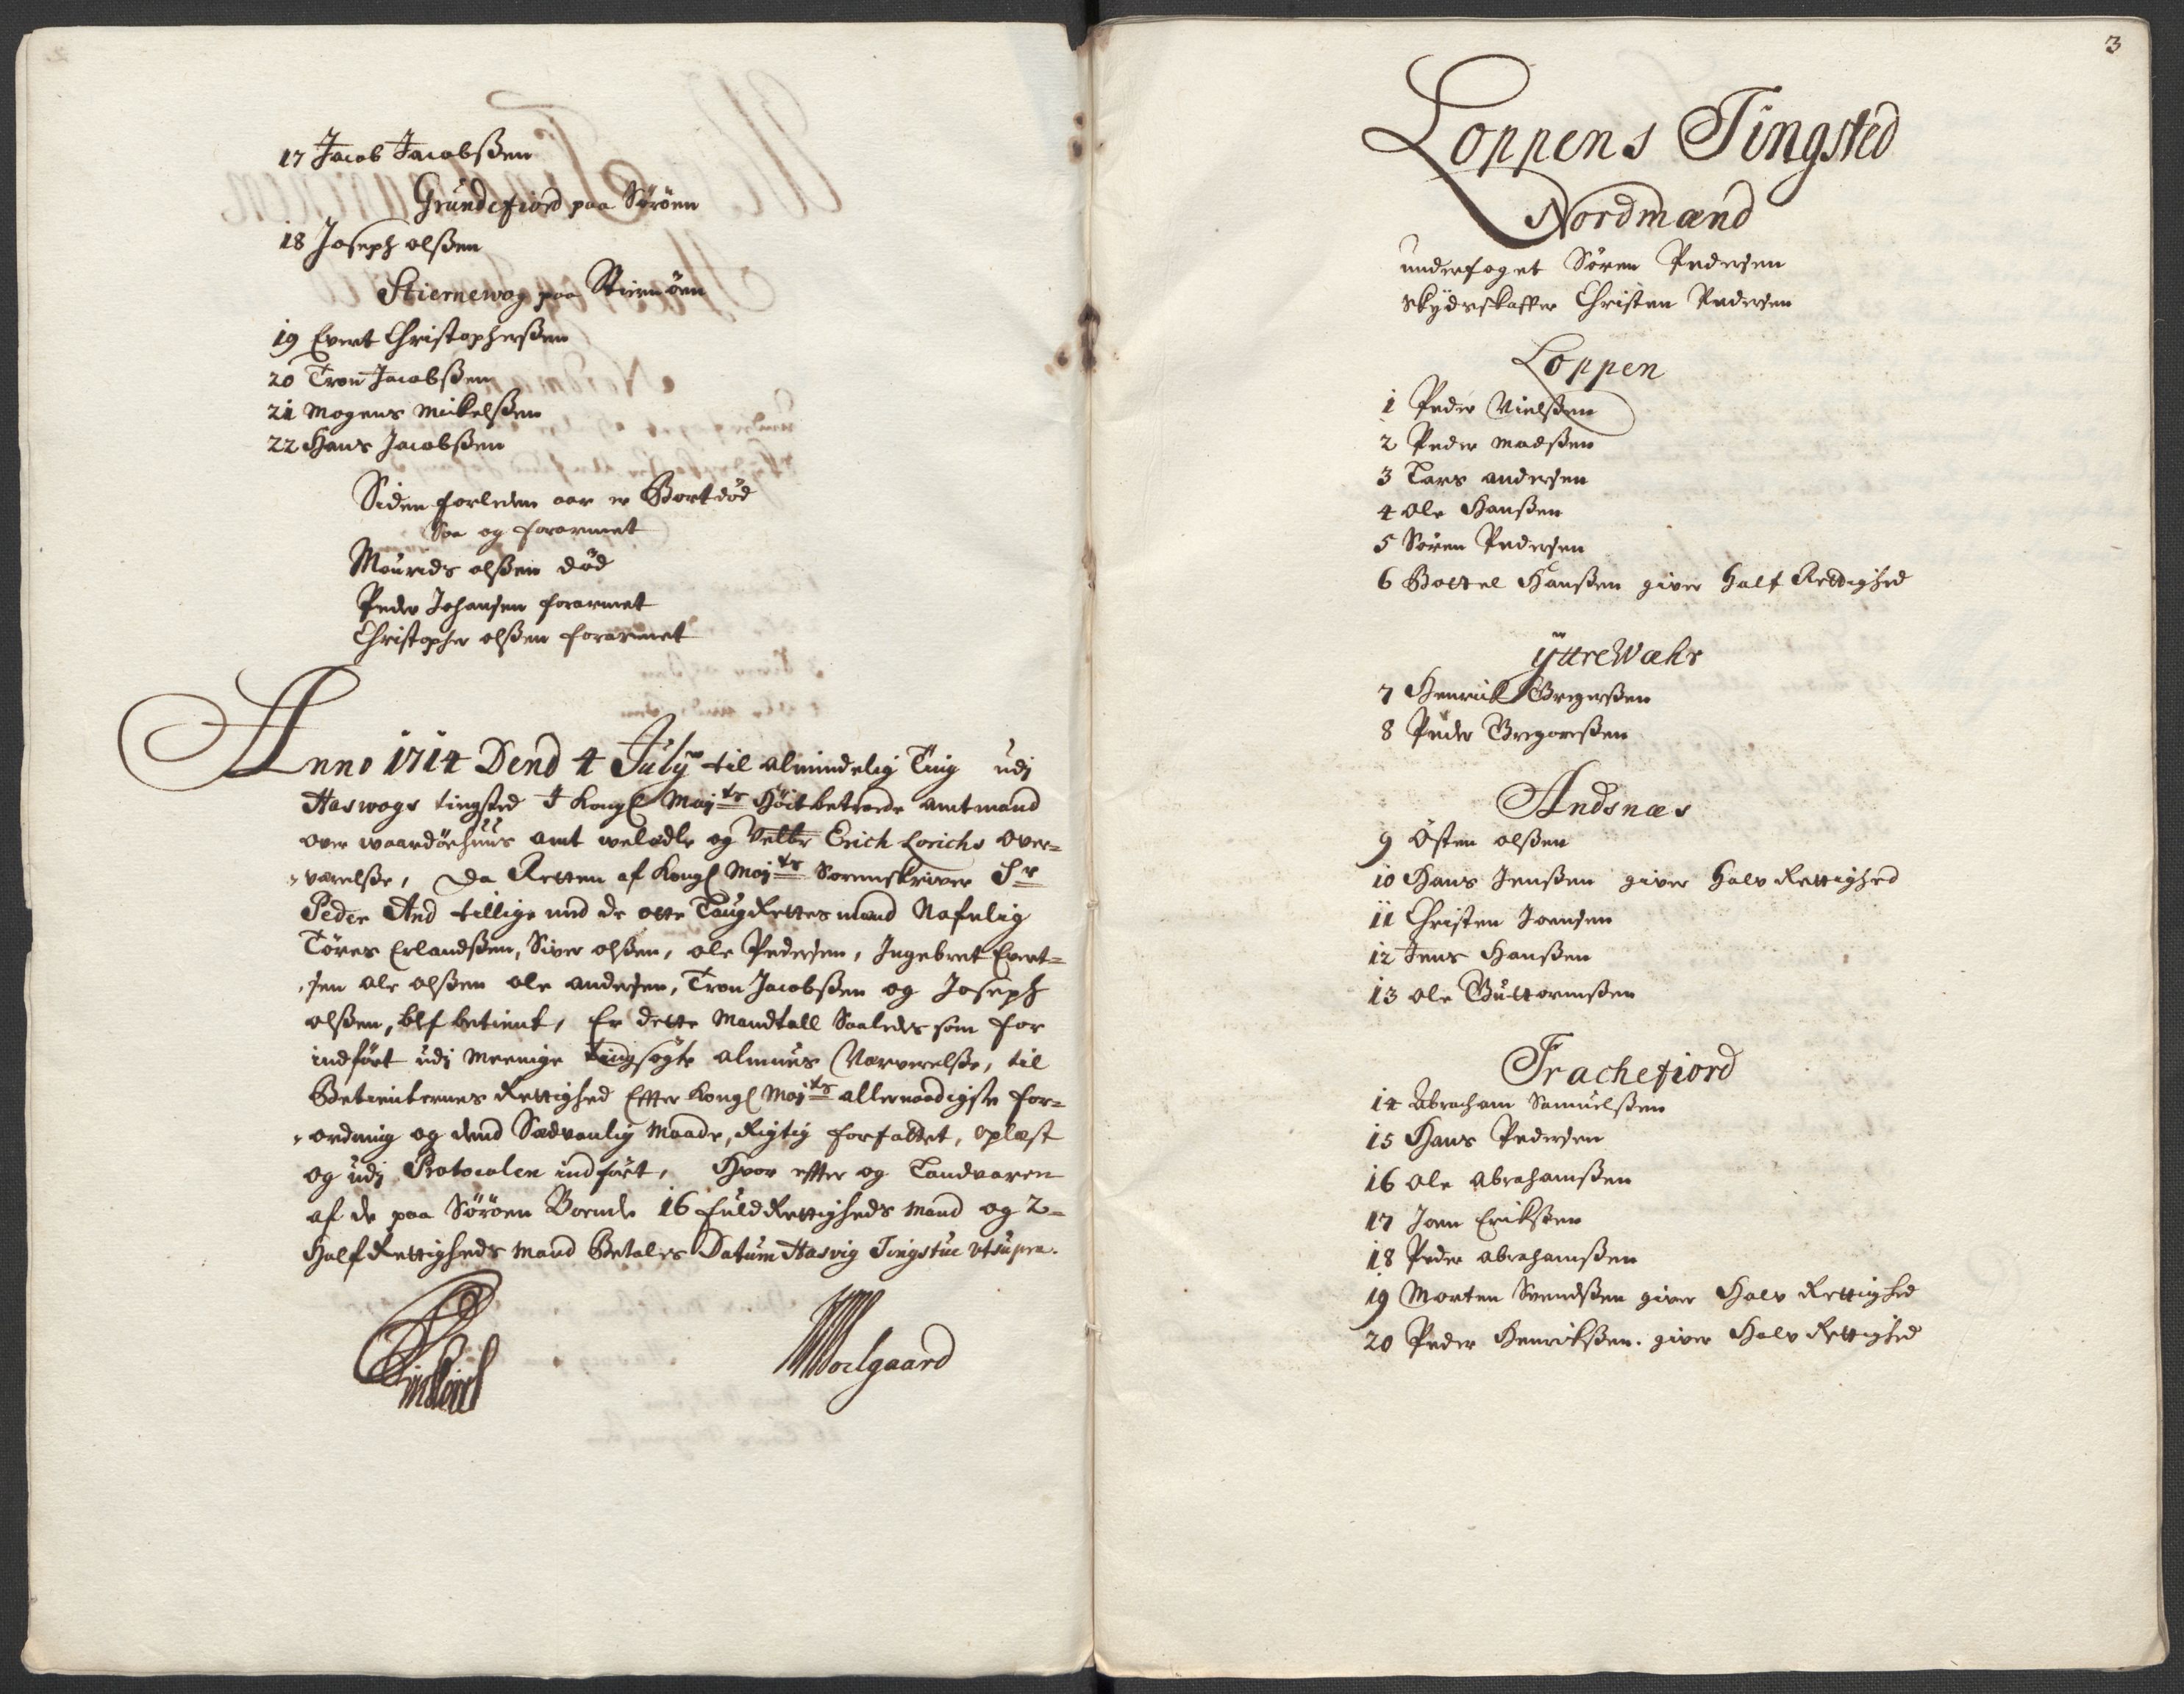 17 Jacob Jacobßen
Grundefiord paa Sørøen
18 Joseph olßen
Stiernewog paa Stiernøen
19 Evert Christopherßen
20 Tron Jacobßen
21 Mogens Mickelßen
22 Hans Jacobßen
Siden forleden aar er Bortdöd
Saa og forarmet
Mourids olßen död
Peder Johansen forarmet
Christopher olßen forarmet
Anno 1714 Dend 4 July til almindelig Ting udj
Haswogs tingsted I Kongl Maytts Höitbetroede Amtmand
over waardöehuus amt welædle og Velbr Erich Lorichs Over-
værelße, Da Retten af Kongl Maytts Sorenskriver Sr
Peder And tillige med de otte LaugRettes mænd Nafnlig
Töres Erlandßen, Siver olßen, ole Pedersen, Ingebret Evert-
sen ole olßen ole andersen, Tron Jacobßen og Joseph
olßen, blf betient, Er dette Mandtall Saaledes som for
indfört udj Meenige Tingsögte almues Nærverelße, til
Betienternes Rettighed Efter Kongl Maytts allernaadigste for-
ordning og dend Sædvanlig Maade, Rigtig forfattet, oplæst
og udj Protocolen indfört, Hvor efter og Landvaren
af de paa Sörøen Boende 16 fuldRettigheds Mænd og 2-
HalfRettigheds Mænd Betales Datum Hasvig Tingstue Utsupra.
3
Loppens Tingsted
Nordmænd
underfoget Sören Pedersen
Skydsskaffer Christen Pedersen
Loppen
1 Peder Nielßen
2 Peder Madßen
3 Lars andersen
4 ole Hanßen
5 Sören Pedersen
6 Bottel Hanßen giver Half Rettighed
ÿttreWæhr
7 Henrick Gregerßen
8 Peder Gregorsßen
Andsnæs
9 Östen olßen
10 Hans Jenßen giver halv Rettighed
11 Christen Joensen
12 Jens Hanßen
13 ole Guttormßen
Frachefiord
14 Abracham Samuelßen
15 Hans Pedersen
16 ole Abrahamßen
17 Joen Erikßen
18 Peder abrahamßen
19 Morten Svendßen giver Halv Rettighed
20 Peder Henrikßen. giver Halv Rettighed